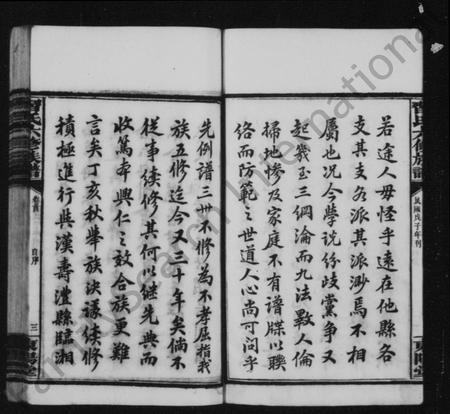 若途人毋怪乎遠在他縣各
支其支各派其派渺焉不相
屬也況今學說份歧黨爭又
起幾至三綱淪而九法斁人倫
掃地慘及家庭不有譜牒以聯
絡而防範之世道人心尚可問乎
民國戊子年刊
先例譜三世不修為不孝屈指我
族五修迄今又三十年矣倘不
從事續修其何以繼先典而
收篤本興仁之效合族更難
言矣丁亥秋舉族決議續修
積極進行與漢壽澧縣臨湘
氏六修族譜
卷首
自序
三
FamilySearch International